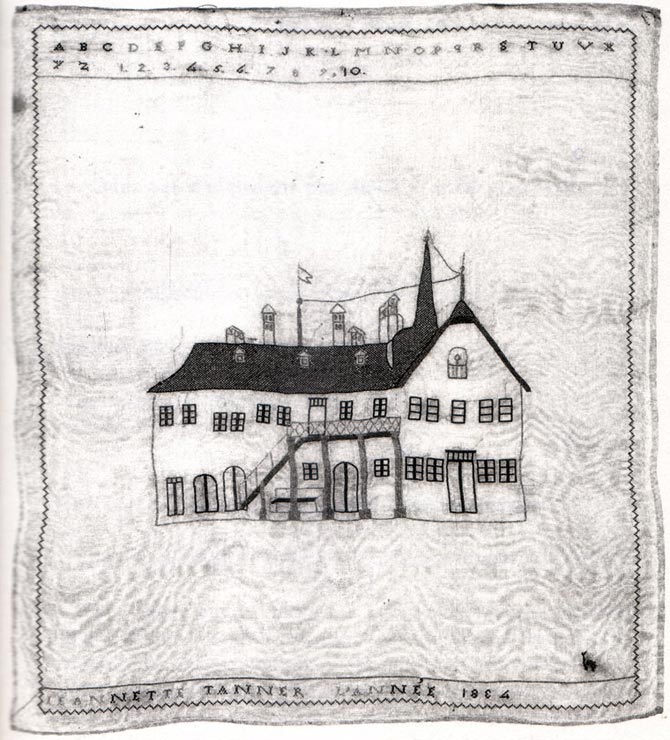 A B C D E F G H I J K L M N O P Q R S T U V X
Y Z 1. 2. 3. 4. 5. 6. 7 8 9. 10.
JEANNETTE TANNER L'ANNÉE 1834